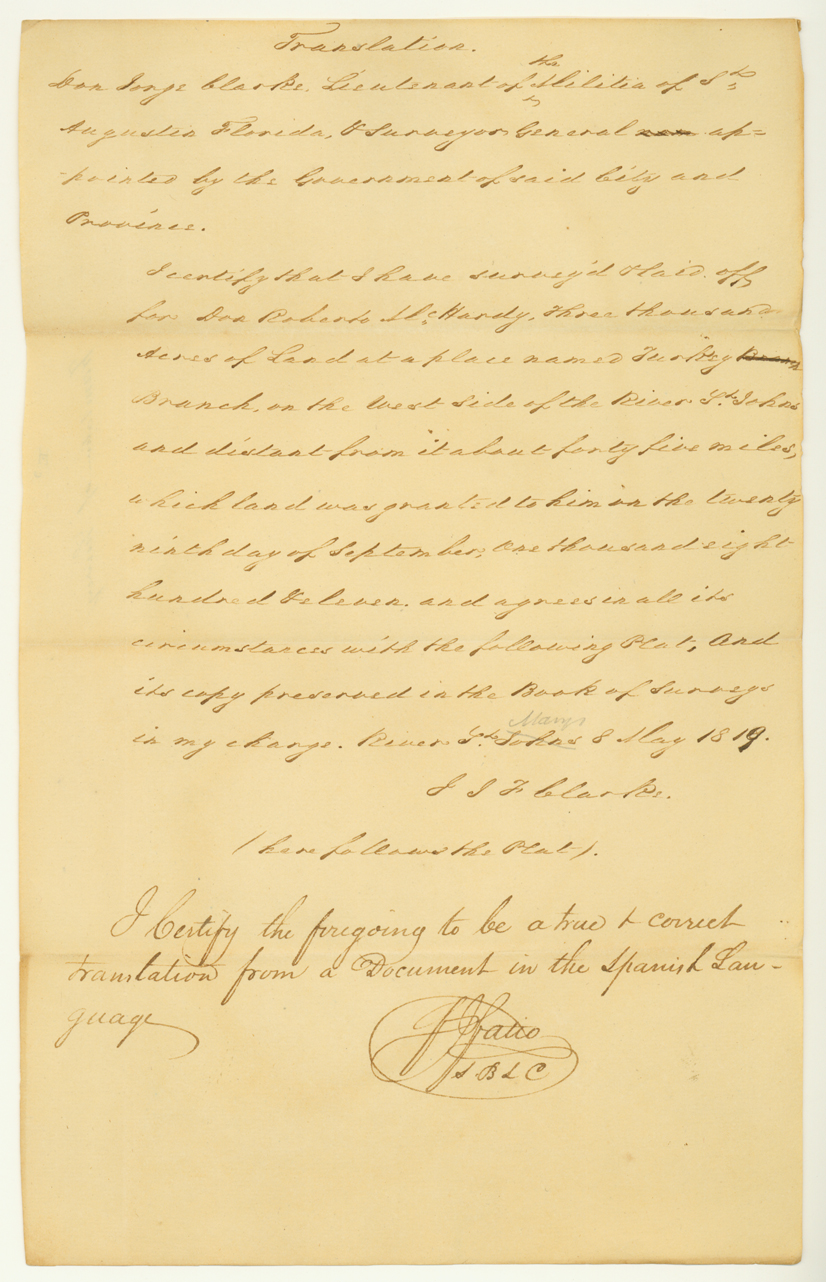 Translation.
Don Jorge Clarke, Lieutenant of the Militia of St.
Augustin Florida, & Surveyor General ap=
-pointed by the Government of said City and
Province.
I certify that I have survey'd & laid off
for Don Roberto McHardy, Three thousand
Acres of Land at a place named Turkey
Branch, on the West side of the River St. Johns
and distant from it about forty five miles,
which land was granted to him on the twenty
ninth day of September, One thousand eight
hundred & eleven. and agrees in all its
circumstances with the following Plat, And
its copy preserved in the Book of Surveys
Marys
in my charge. River St. Johns 8 May 1819.
J J F Clarke.
(here follows the Plat).
I Certify the foregoing to be a true & correct
translation from a Document in the Spanish Lan-
guage
F J Fatio
S B L C